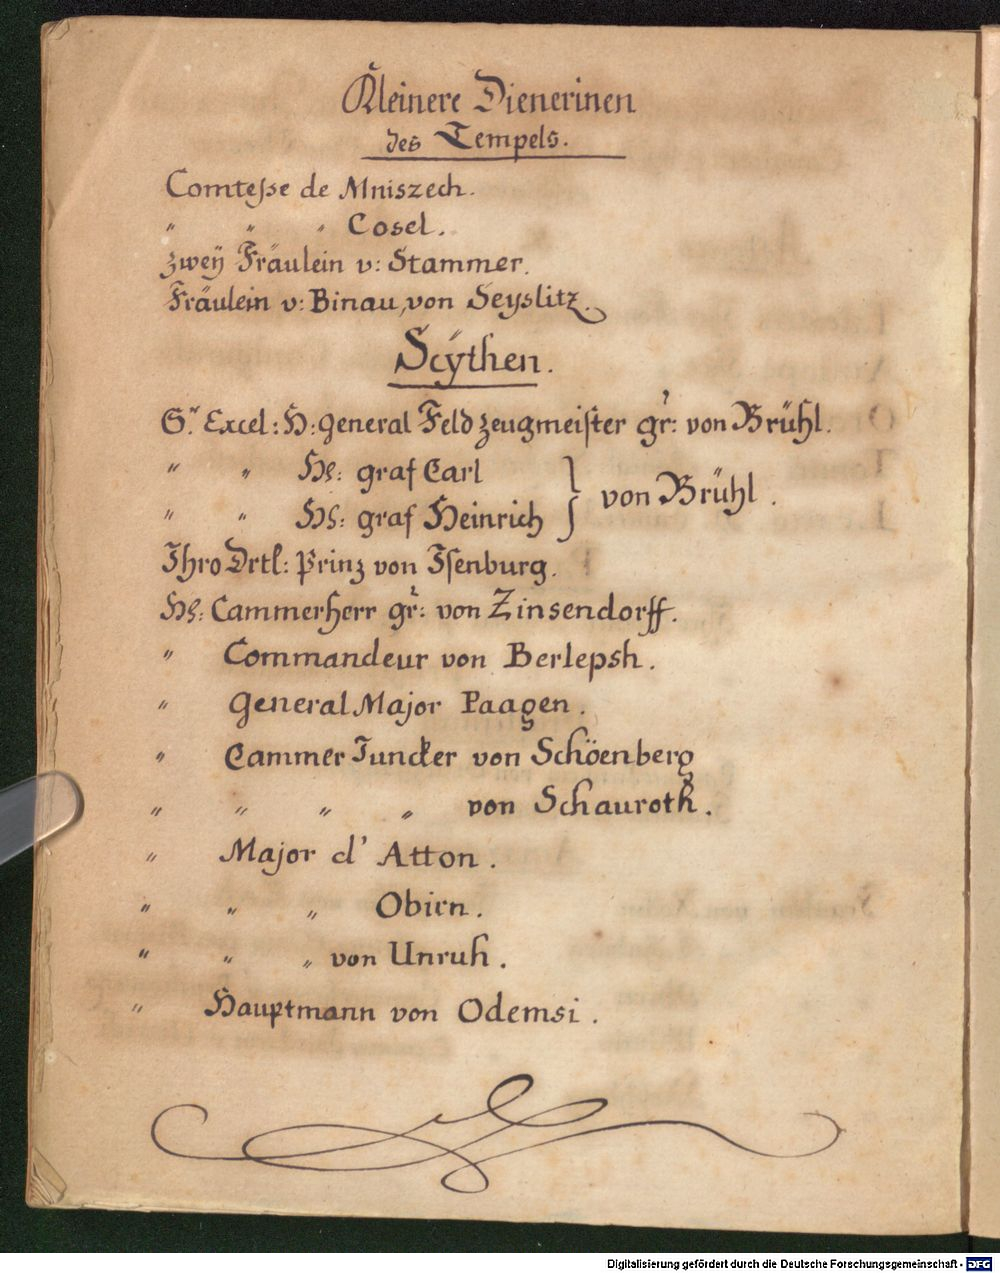 Kleinere Dienerinen
des Tempels.
Comtesse de Mniszech.
" " " Cosel.
zweÿ Fräulein v: Stammer.
Fräulein v: Binau, von Seyslitz.
Scÿthen.
Sr. Excel: H: general Feldzeugmeister gr: von Brühl.
" " HE: graf Carl
" " HE: graf Heinrich } von Brühl.
Ihro Drtl: Prinz von Isenburg.
HE: Cammerherr gr: von Zinsendorff.
" Commandeur von Berlepsh.
" general Major Paagen.
" Cammer Juncker von Schöenberg
" " " " von Schauroth.
" Major d' Atton.
" " " Obirn.
" " " von Unruh.
" Hauptmann von Odemsi.
Digitalisierung gefördert durch die Deutsche Forschungsgemeinschaft - DFG